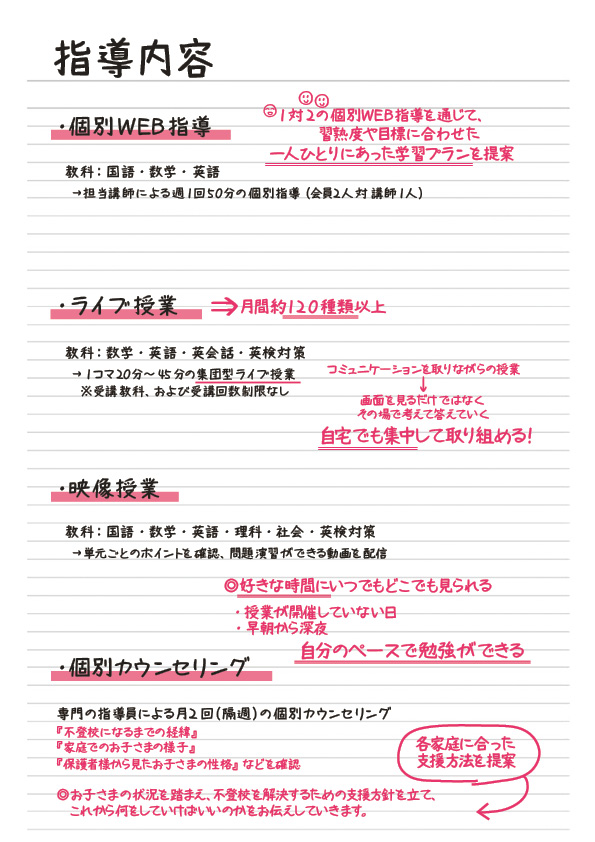 指導内容
・個別WEB指導
1対2の個別WEB指導を通じて、
習熟度や目標に合わせた
一人ひとりにあった学習プランを提案
教科：国語・数学・英語
→担当講師による週1回50分の個別指導（会員2人対講師1人）
・ライブ授業
⇒月間約120種類以上
教科：数学・英語・英会話・英検対策
→1コマ20分～45分の集団型ライブ授業
※受講教科、および受講回数制限なし
コミュニケーションを取りながらの授業
↓
画面を見るだけではなく
その場で考えて答えていく
自宅でも集中して取り組める！
・映像授業
教科：国語・数学・英語・理科・社会・英検対策
→単元ごとのポイントを確認、問題演習ができる動画を配信
◎好きな時間にいつでもどこでも見られる
・授業が開催していない日
・早朝から深夜
自分のペースで勉強ができる
・個別カウンセリング
専門の指導員による月2回（隔週）の個別カウンセリング
『不登校になるまでの経緯』
『家庭でのお子さまの様子』
『保護者様から見たお子さまの性格』などを確認
各家庭に合った
支援方法を提案
◎お子さまの状況を踏まえ、不登校を解決するための支援方針を立て、
これから何をしていけばいいのかをお伝えしていきます。